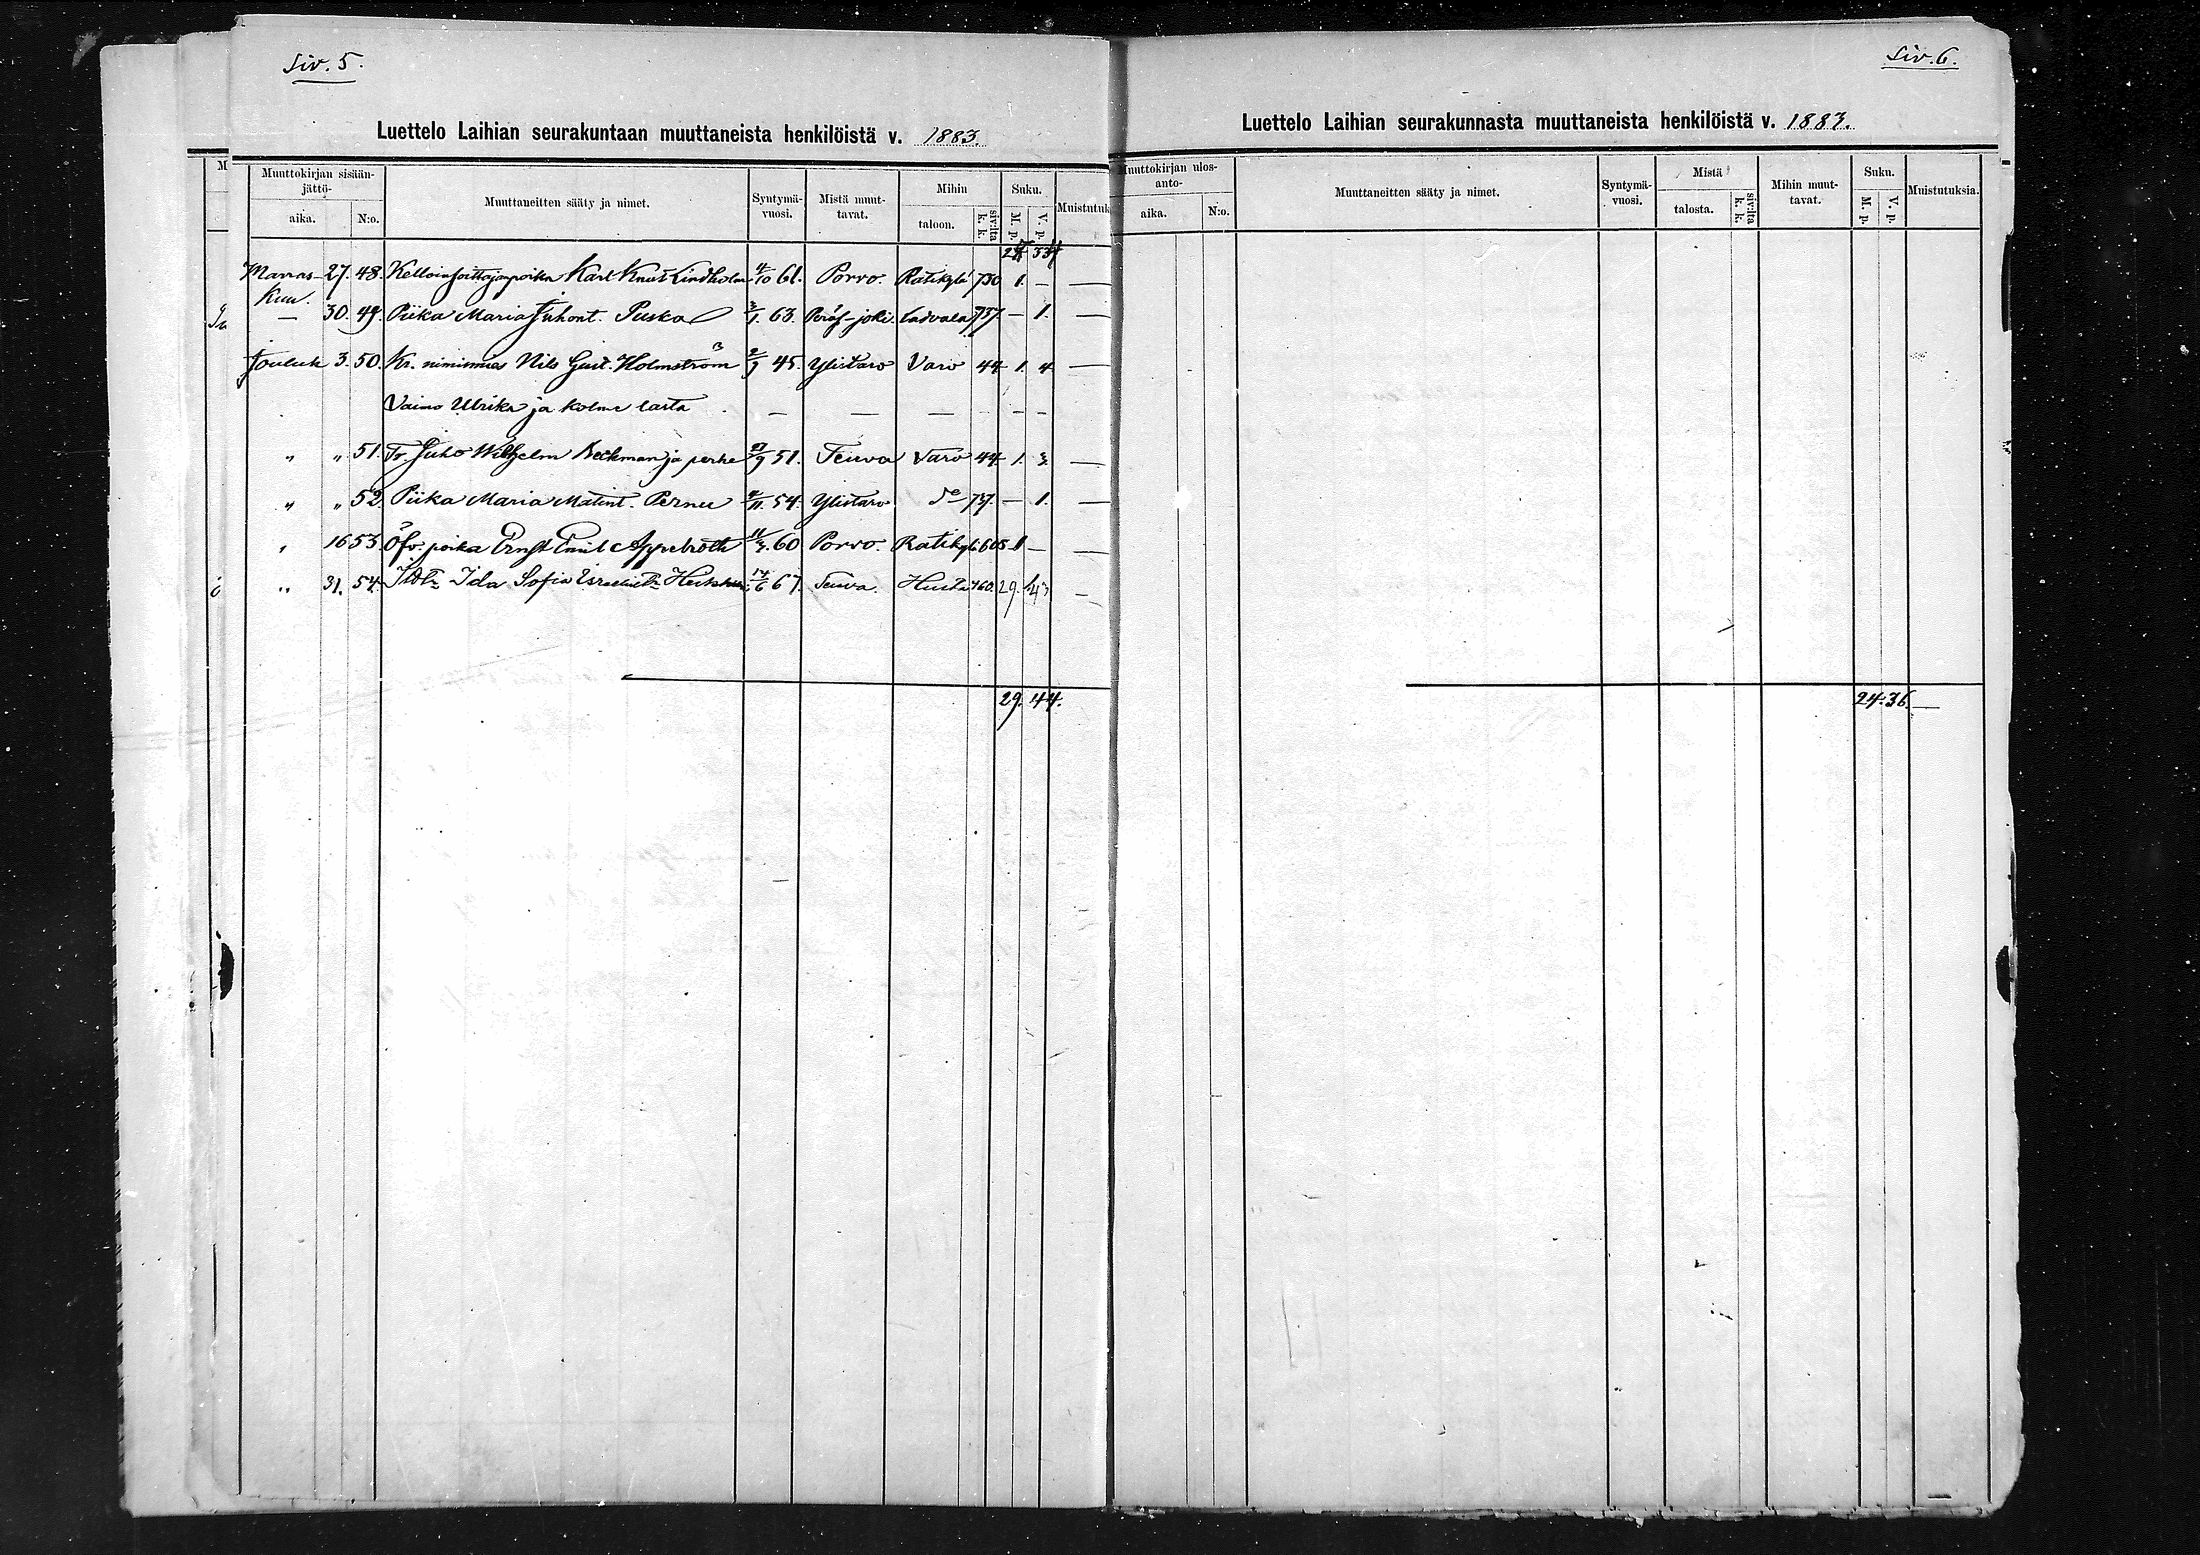 Siv. 5.
Luettelo Laihian seurakuntaan muuttaneista henkilöistä v. 1883.
M
Muuttokirjan sisään-
jättö-
aika.
N:o.
Muuttaneitten sääty ja nimet.
Syntymä-
vuosi.
Mistä muut-
tavat.
Mihin
taloon.
sivulta
k. k.
Suku.
M. p.
V. p.
Muistutuk
Marras- 27. 48. Karl Knut Lindholm 4/10 61. Porvo. Ratikylä 730 1. — —
Kuu.
— 30. 49. Piika Maria Juhont. Puska 3/1. 63. Peräs-joki. Ladvala 737. — 1. —
Jouluk 3. 50. Kr. nimismies Nils Gust. Holmström 2/9 45. Ylistaro Varo 44 1. 4 —
Vaimo Ulrika ja kolme lasta — — — — —
" " 51. Tr. Juho Wilhelm Beckman ja perhe 27/9 51. Teuva Varo 44. 1. 3. —
" " 52. Piika Maria Matint. Pernu 9/11. 54. Ylistaro de 737. — 1. —
" 16 53. Öfv. poika Ernst Emil Appelroth 11/3. 60 Porvo. Ratikylä 605 1 —
" 31. 54. Ida Sofia 14/6 67. Teuva. 160. 29. —
29. 44.
Siv. 6.
Luettelo Laihian seurakunnasta muuttaneista henkilöistä v. 1883.
Muuttokirjan ulos-
anto-
aika.
N:o.
Muuttaneitten sääty ja nimet.
Syntymä-
vuosi.
Mistä
talosta.
siv:lta
k. k.
Mihin muut-
tavat.
Suku.
M. p.
V. p.
Muistutuksia.
24. 36. —